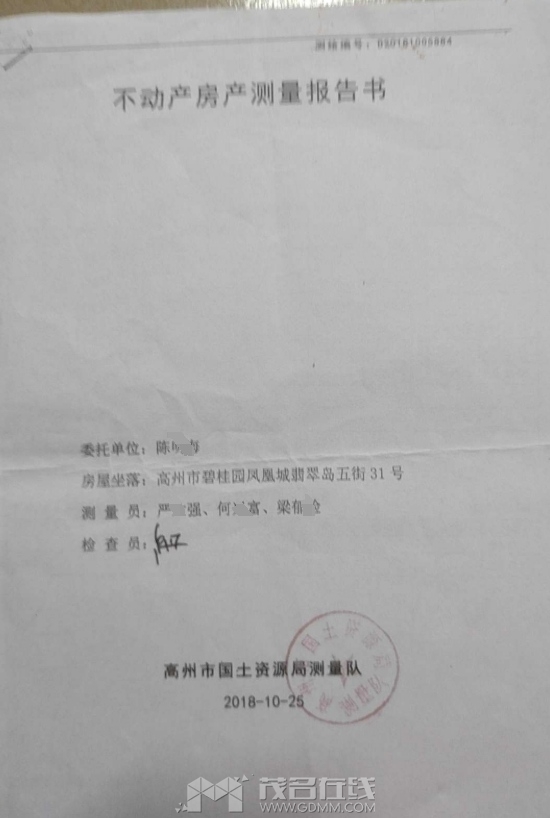 测绘编号：050181005884
不动产房产测量报告书
委托单位：陈 海
房屋坐落：高州市碧桂园凤凰城翡翠岛五街31号
测 量 员：严 强、何 富、梁
检 查 员：
高州市国土资源局测量队
2018-10-25
国土资源局测量队
茂名在线
WWW.GDMM.COM